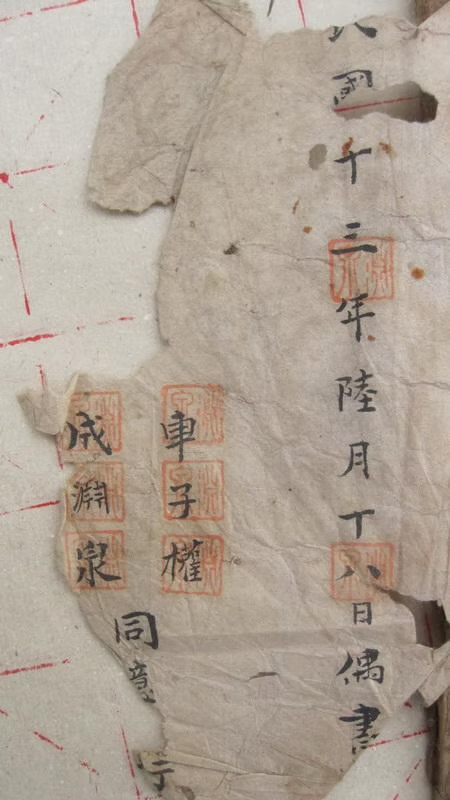 民國十三年陸月十八日偶書
車子權
成淵泉
同意